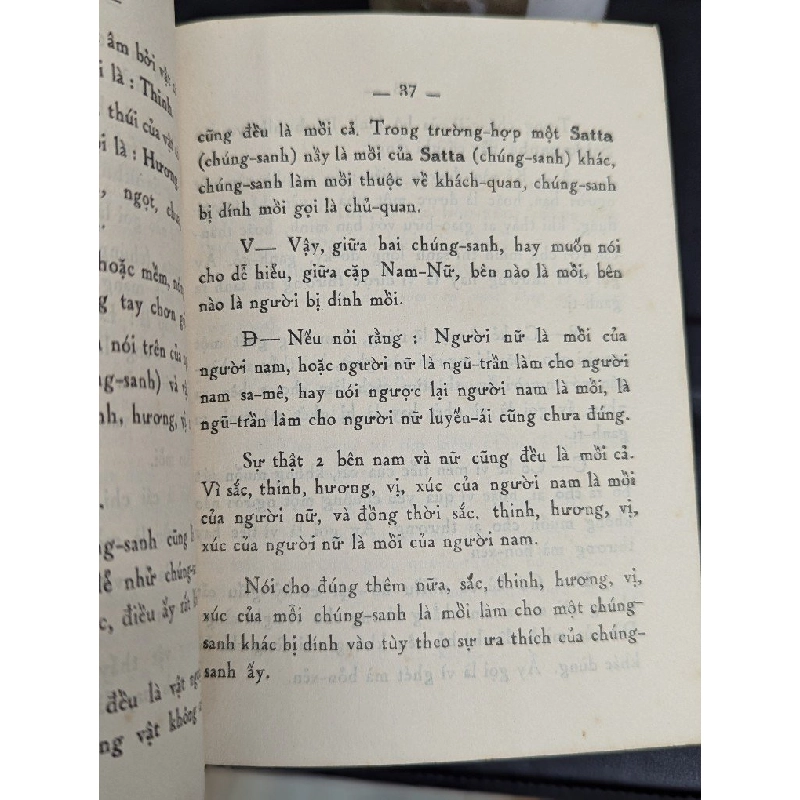 âm bởi
là : Thinh
thúi của
là : Hương
ngọt,
hoặc mềm,
tay chơn
nói trên của
hương,
sanh cũng
dể nhử chúng-
điều ấy
đều là vật
vật không
— 37 —
cũng đều là mồi cả. Trong trường-hợp một Satta
(chúng-sanh) nầy là mồi của Satta (chúng-sanh) khác,
chúng-sanh làm mồi thuộc về khách-quan, chúng-sanh
bị dính mồi gọi là chủ-quan.
V— Vậy, giữa hai chúng-sanh, hay muốn nói
cho dễ hiểu, giữa cặp Nam-Nữ, bên nào là mồi, bên
nào là người bị dính mồi.
Đ— Nếu nói rằng : Người nữ là mồi của
người nam, hoặc người nữ là ngũ-trần làm cho người
nam sa-mê, hay nói ngược lại người nam là mồi, là
ngũ-trần làm cho người nữ luyến-ái cũng chưa đúng.
Sự thật 2 bên nam và nữ cũng đều là mồi cả.
Vì sắc, thinh, hương, vị, xúc của người nam là mồi
của người nữ, và đồng thời sắc. thinh, hương, vị,
xúc của người nữ là mồi của người nam.
Nói cho đúng thêm nữa, sắc, thinh, hương, vị,
xúc của mỗi chúng-sanh là mồi làm cho một chúng-
sanh khác bị dính vào tùy theo sự ưa thích của chúng-
sanh ấy.